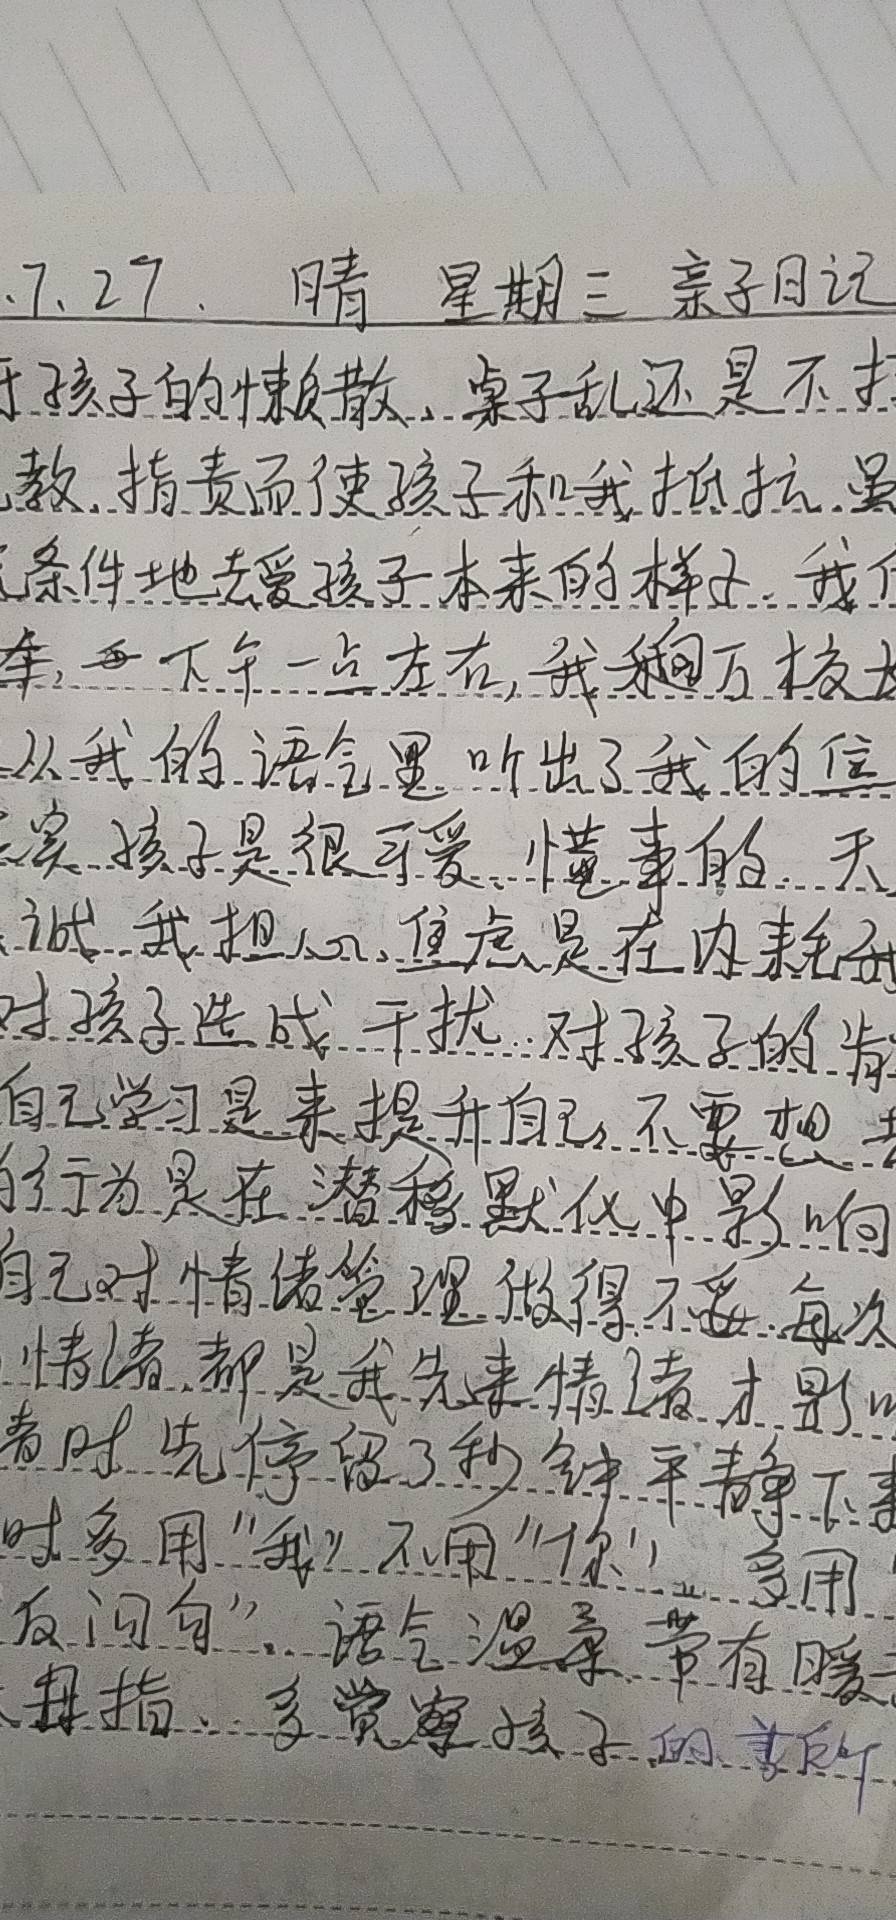 .7.27. 晴 星期三 亲子日记
孩子的懒散、桌子乱还是不
教、指责而使孩子和我抵抗.虽
条件地去爱孩子本来的样子.我
下午一点左右,我和万校
从我的语气里听出了我的焦
实孩子是很可爱、懂事的.天
诚.我担心、焦虑是在内耗我
对孩子造成干扰.对孩子的
自己学习是来提升自己,不要想
的行为是在潜移默化中影响
自己对情绪管理做得不妥.每次
情绪,都是我先来情绪才影响
绪时先停留3秒钟平静下来
时多用“我”不用“你”,多用
反问句”.语气温柔带有暖
拇指.多觉察孩子的